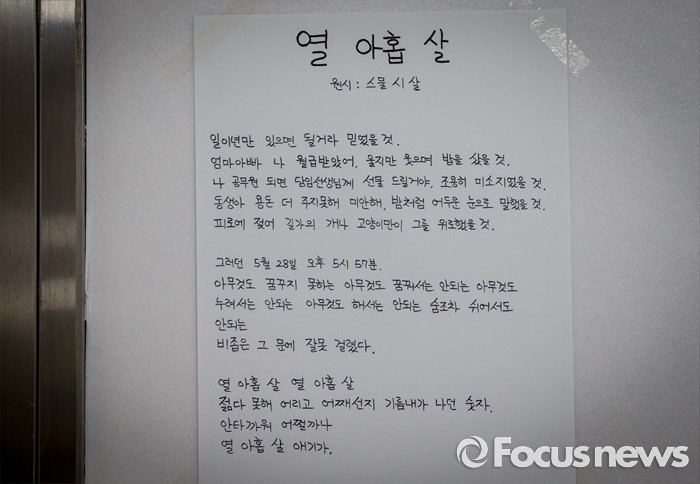 열 아홉 살
원시 : 스물 시 살
일이년만 있으면 될거라 믿었을 것.
엄마아빠 나 월급받았어. 울지만 웃으며 밥을 샀을 것.
나 공무원 되면 담임선생님께 선물 드릴거야. 조용히 미소지었을 것.
동생아 용돈 더 주지못해 미안해. 밤처럼 어두운 눈으로 말했을 것.
피로에 젖어 길가의 개나 고양이만이 그를 위로했을 것.
그러던 5월 28일 오후 5시 57분.
아무것도 꿈꾸지 못하는 아무것도 꿈꿔서는 안되는 아무것도
누려서는 안되는 아무것도 해서는 안되는 숨조차 쉬어서도
안되는
비좁은 그 문에 잘못 걸렸다.
열 아홉 살 열 아홉 살
젊다 못해 어리고 어째선지 기름내가 나던 숫자.
안타까워 어쩔까나
열 아홉 살 애기가.
Focusnews